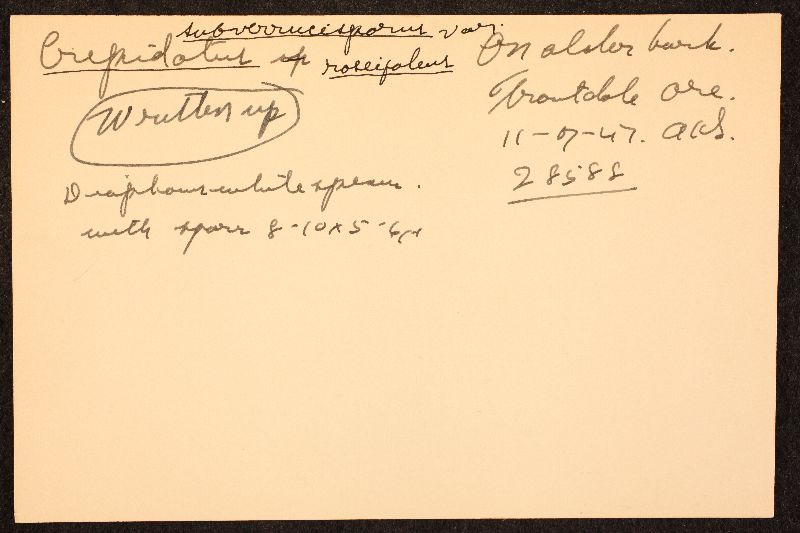 subverrucisporus var.
Crepidotus sp roseifoleus
Written up
Diaphanous-white specim.
with spores 8-10x5-6μ
On alder bark.
Troutdale Ore.
11-07-47. AHS.
28588